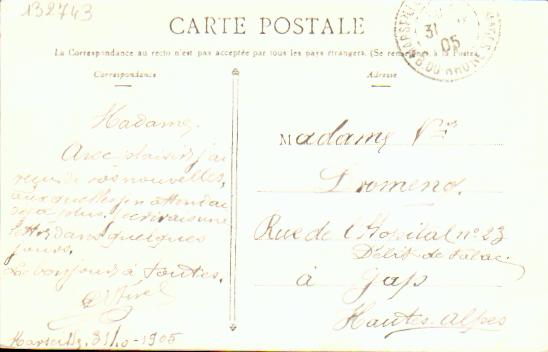 132743
CARTE POSTALE
La Correspondance au recto n'est pas acceptée par tous les pays étrangers. (Se renseigner à la Poste)
Correspondance
Adresse
31
05
B. DU RHONE
Madame,
Avec plaisir j'ai
reçu de vos nouvelles,
plus. J'écrirais une
dans quelques
jours.
Le bonjour à toutes.
Marseille, 31/10-1905
Madame Vve
Dromend.
Rue de l'Hospital n° 23
Débit de tabac.
à Gap
Hautes-Alpes